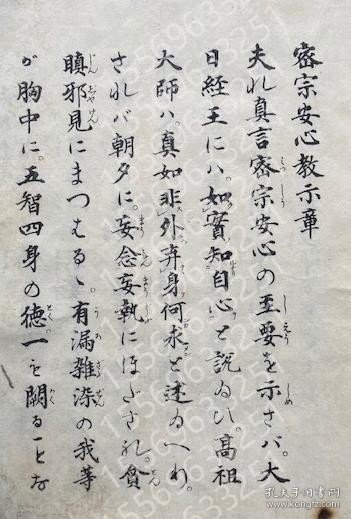 密宗安心教示章
夫れ真言密宗安心の至要を示さバ。大
日経王にハ。如實知自心と説ゐひ。高祖
大師ハ。真如非外弃身何求と述ゐへり。
されバ朝夕に。妄念妄執にほだされ。貪
瞋邪見にまつハるゝ。有漏雑染の我等
が胸中に。五智四身の徳一も闕ることな